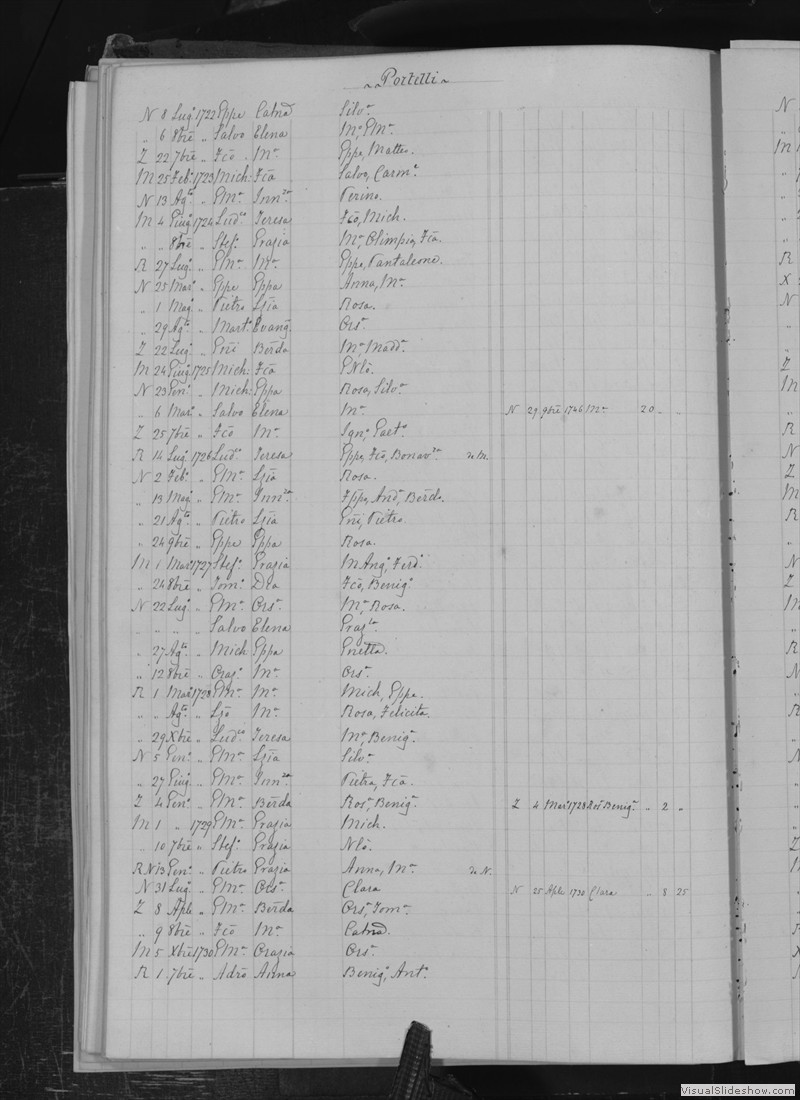 Portelli
N 8 Lug.o 1722 Gppe Catnd Silv.a
" 6 8bre " Salvo Elena M.a, GM.a
Z 22 7bre " Fco M.a Gppe, Matteo.
M 25 Feb.o 1723 Mich: Fca Salv, Carm.a
N 13 Ag.to " GM.a Inn.za Perino.
M 4 Giug. 1724 Lud.co Teresa Fco, Mich.
" " 8bre " Stef.o Grazia M.a, Olimpia, Fca.
R 27 Lug.o " GM.a M.a Gppe, Pantaleone.
N 25 Mar.o " Gppe Gppa Anna, M.a
" 1 Mag.o " Pietro Lzia Rosa.
" 29 Ag.to " Mart.o Evang. Ors.a
Z 22 Lug.o " Gni Berda M.a, Madd.a
M 24 Giug. 1725 Mich: Fca GNlo.
N 23 Gen.o " Mich: Gppa Rosa, Silv.a
" 6 Mar.o " Salvo Elena M.a N 29 9bre 1746 M.a 20 " "
Z 25 7bre " Fco M.a Ign.o, Gaet.o
R 14 Lug.o 1726 Lud.co Teresa Gppe, Fco, Bonav.ra
N 2 Feb.o " GM.a Lzia Rosa.
" 13 Mag.o " GM.a Inn.za Gppe, And, Berdo.
" 21 Ag.to " Pietro Lzia Gni, Pietro
" 24 9bre " Gppe Gppa Rosa.
M 1 Mar.o 1727 Stef.o Grazia M Ang.o, Ferd.o
" 24 8bre " Tom.o Dea Fco, Benig.o
N 22 Lug.o " GM.a Ors.a M.a, Rosa.
" " " Salvo Elena Graz.la
" 27 Ag.to " Mich Gppa Gnetta.
" 12 8bre " Oraz.o M.a Ors.a
R 1 Mar.o 1728 GM.a M.a Mich, Gppe.
" " Ag.to " Lzo M.a Rosa, Felicita.
" 29 Xbre " Lud.co Teresa M.a, Benig.a
N 5 Gen.o " GM.a Lzia Silv.a
" 27 Giug. " GM.a Inn.za Pietra, Fca.
Z 4 Gen.o " GM.a Berda Ros.a, Benig.a Z 4 Mar.o 1728 Benig.a " 2 "
M 1 " 1729 GM.a Grazia Mich.
" 10 7bre " Stef.o Grazia Nlo.
R N 13 Gen.o " Pietro Grazia Anna, M.a
N 31 Lug.o " GM.a Ors.a Clara N 25 Aple 1730 Clara " 8 25
Z 8 Aple " GM.a Berda Ors.a, Tom.a
" 9 8bre " Fco M.a Catnd.
M 5 Xbre 1730 GM.a Orazia Ors.a
R 1 7bre " Adro Anna Benig.o, Ant.o
VisualSlideshow.com